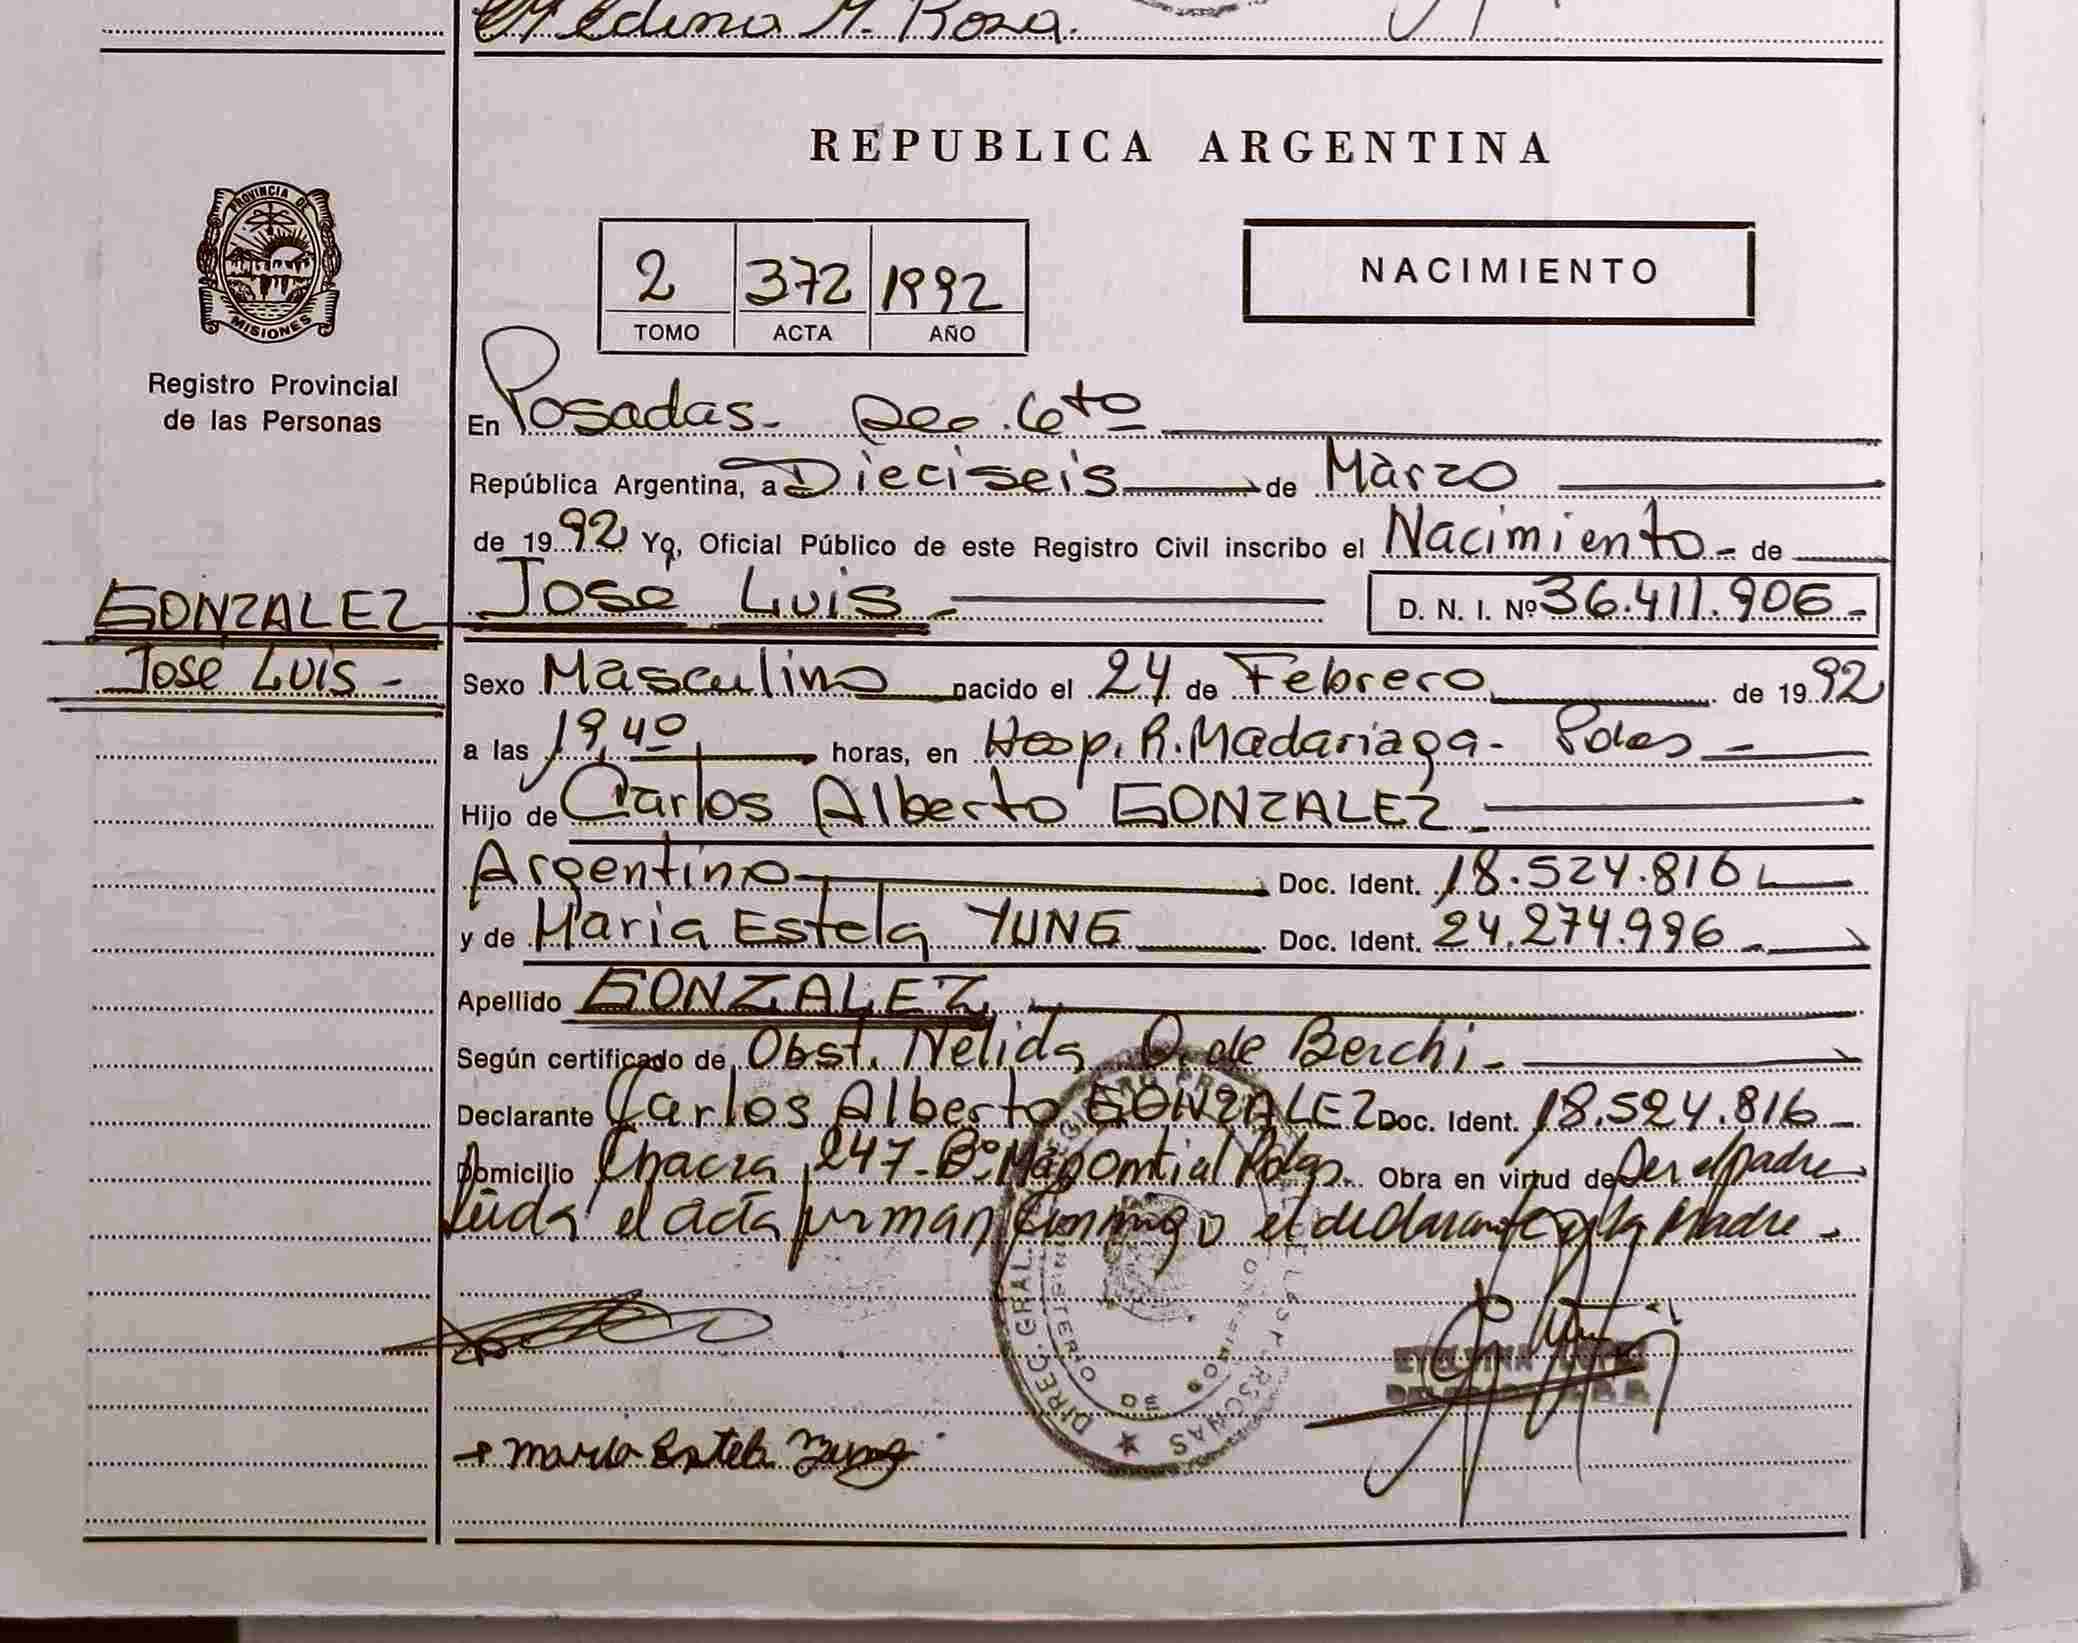 Medina M. Rosa.
REPUBLICA ARGENTINA
PROVINCIA DE
MISIONES
Registro Provincial
de las Personas
2 372 1992
TOMO ACTA AÑO
NACIMIENTO
En Posadas - Sec. 6to
República Argentina, a Dieciseis de Marzo
de 1992 Yo, Oficial Público de este Registro Civil inscribo el Nacimiento - de
GONZALEZ
Jose Luis -
Jose Luis - D. N. I. Nº 36.411.906 -
Sexo Masculino nacido el 24 de Febrero de 1992
a las 19,40 horas, en Hosp. R. Madariaga - Pdas -
Hijo de Carlos Alberto GONZALEZ
Argentino Doc. Ident. 18.524.816
y de Maria Estela YUNG Doc. Ident. 24.274.996 -
Apellido GONZALEZ
Según certificado de Obst. Nelida O. de Berchi -
Declarante Carlos Alberto GONZALEZ Doc. Ident. 18.524.816 -
Domicilio Chacra 247 - Bº Pdas. Obra en virtud de Ser el padre
Leida el acta firman conmigo el declarante y la Madre -
DIREC. GRAL.
MINISTERIO DE
Maria Estela Yung